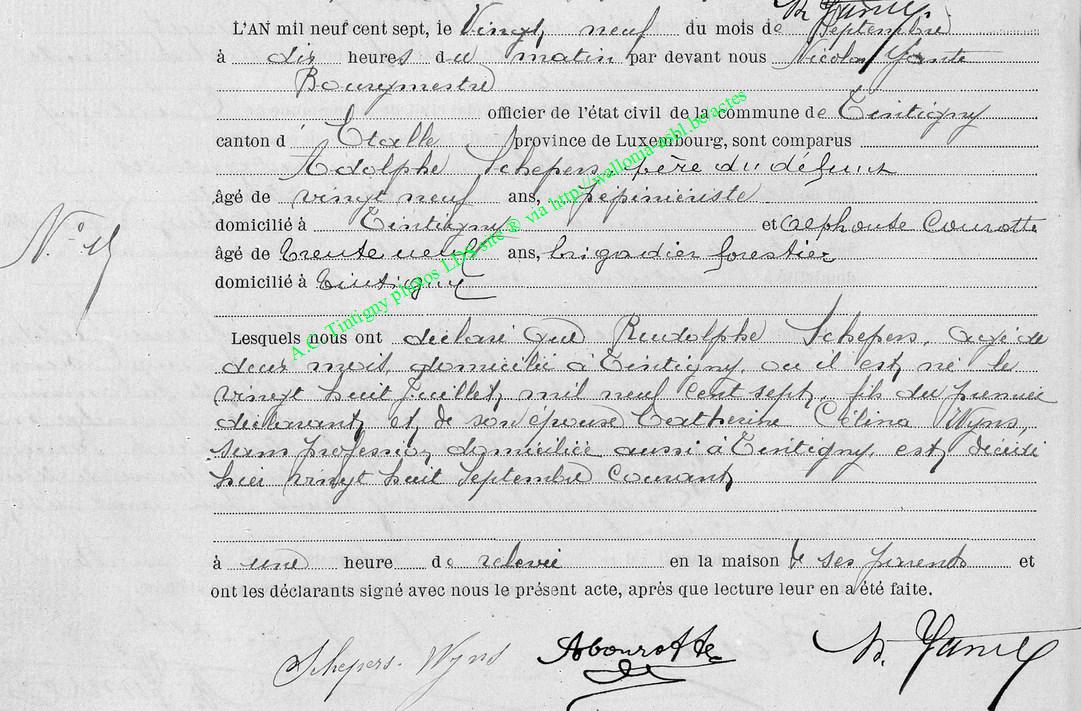 L'AN mil neuf cent sept, le Vingt neuf du mois de Septembre
à dix heures du matin par devant nous Nicolas
Bourgmestre
officier de l'état civil de la commune de Tintigny
canton d' Etalle province de Luxembourg, sont comparus
Adolphe Schepers, père du défunt
âgé de vingt neuf ans, pépiniériste
domicilié à Tintigny et Alphonse Courotte
âgé de trente neuf ans, brigadier forestier
domicilié à Tintigny
Lesquels nous ont déclaré que Rudolphe Schepers, agé de
deux mois, domicilié à Tintigny, où il est né le
vingt huit Juillet mil neuf cent sept, fils du premier
déclarant et de son épouse Catherine Célina Wyns,
sans profession, domiciliée aussi à Tintigny, est décédé
hier vingt huit Septembre courant
à une heure de relevée en la maison de ses parents et
ont les déclarants signé avec nous le présent acte, après que lecture leur en a été faite.
Schepers-Wyns ACourotte
A.C. Tintigny photos LDS site ® via http://wallonia-asbl.be/actes